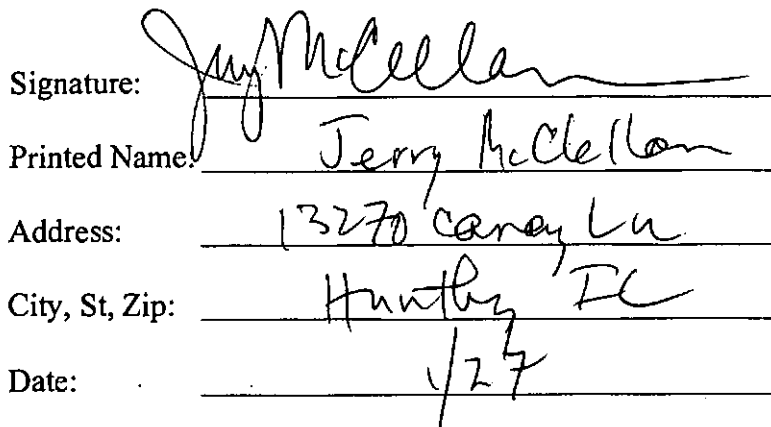 Signature: Jerry McClellan
Printed Name: Jerry McClellan
Address: 13270 Ln
City, St, Zip: Huntley IL
Date: 1/27